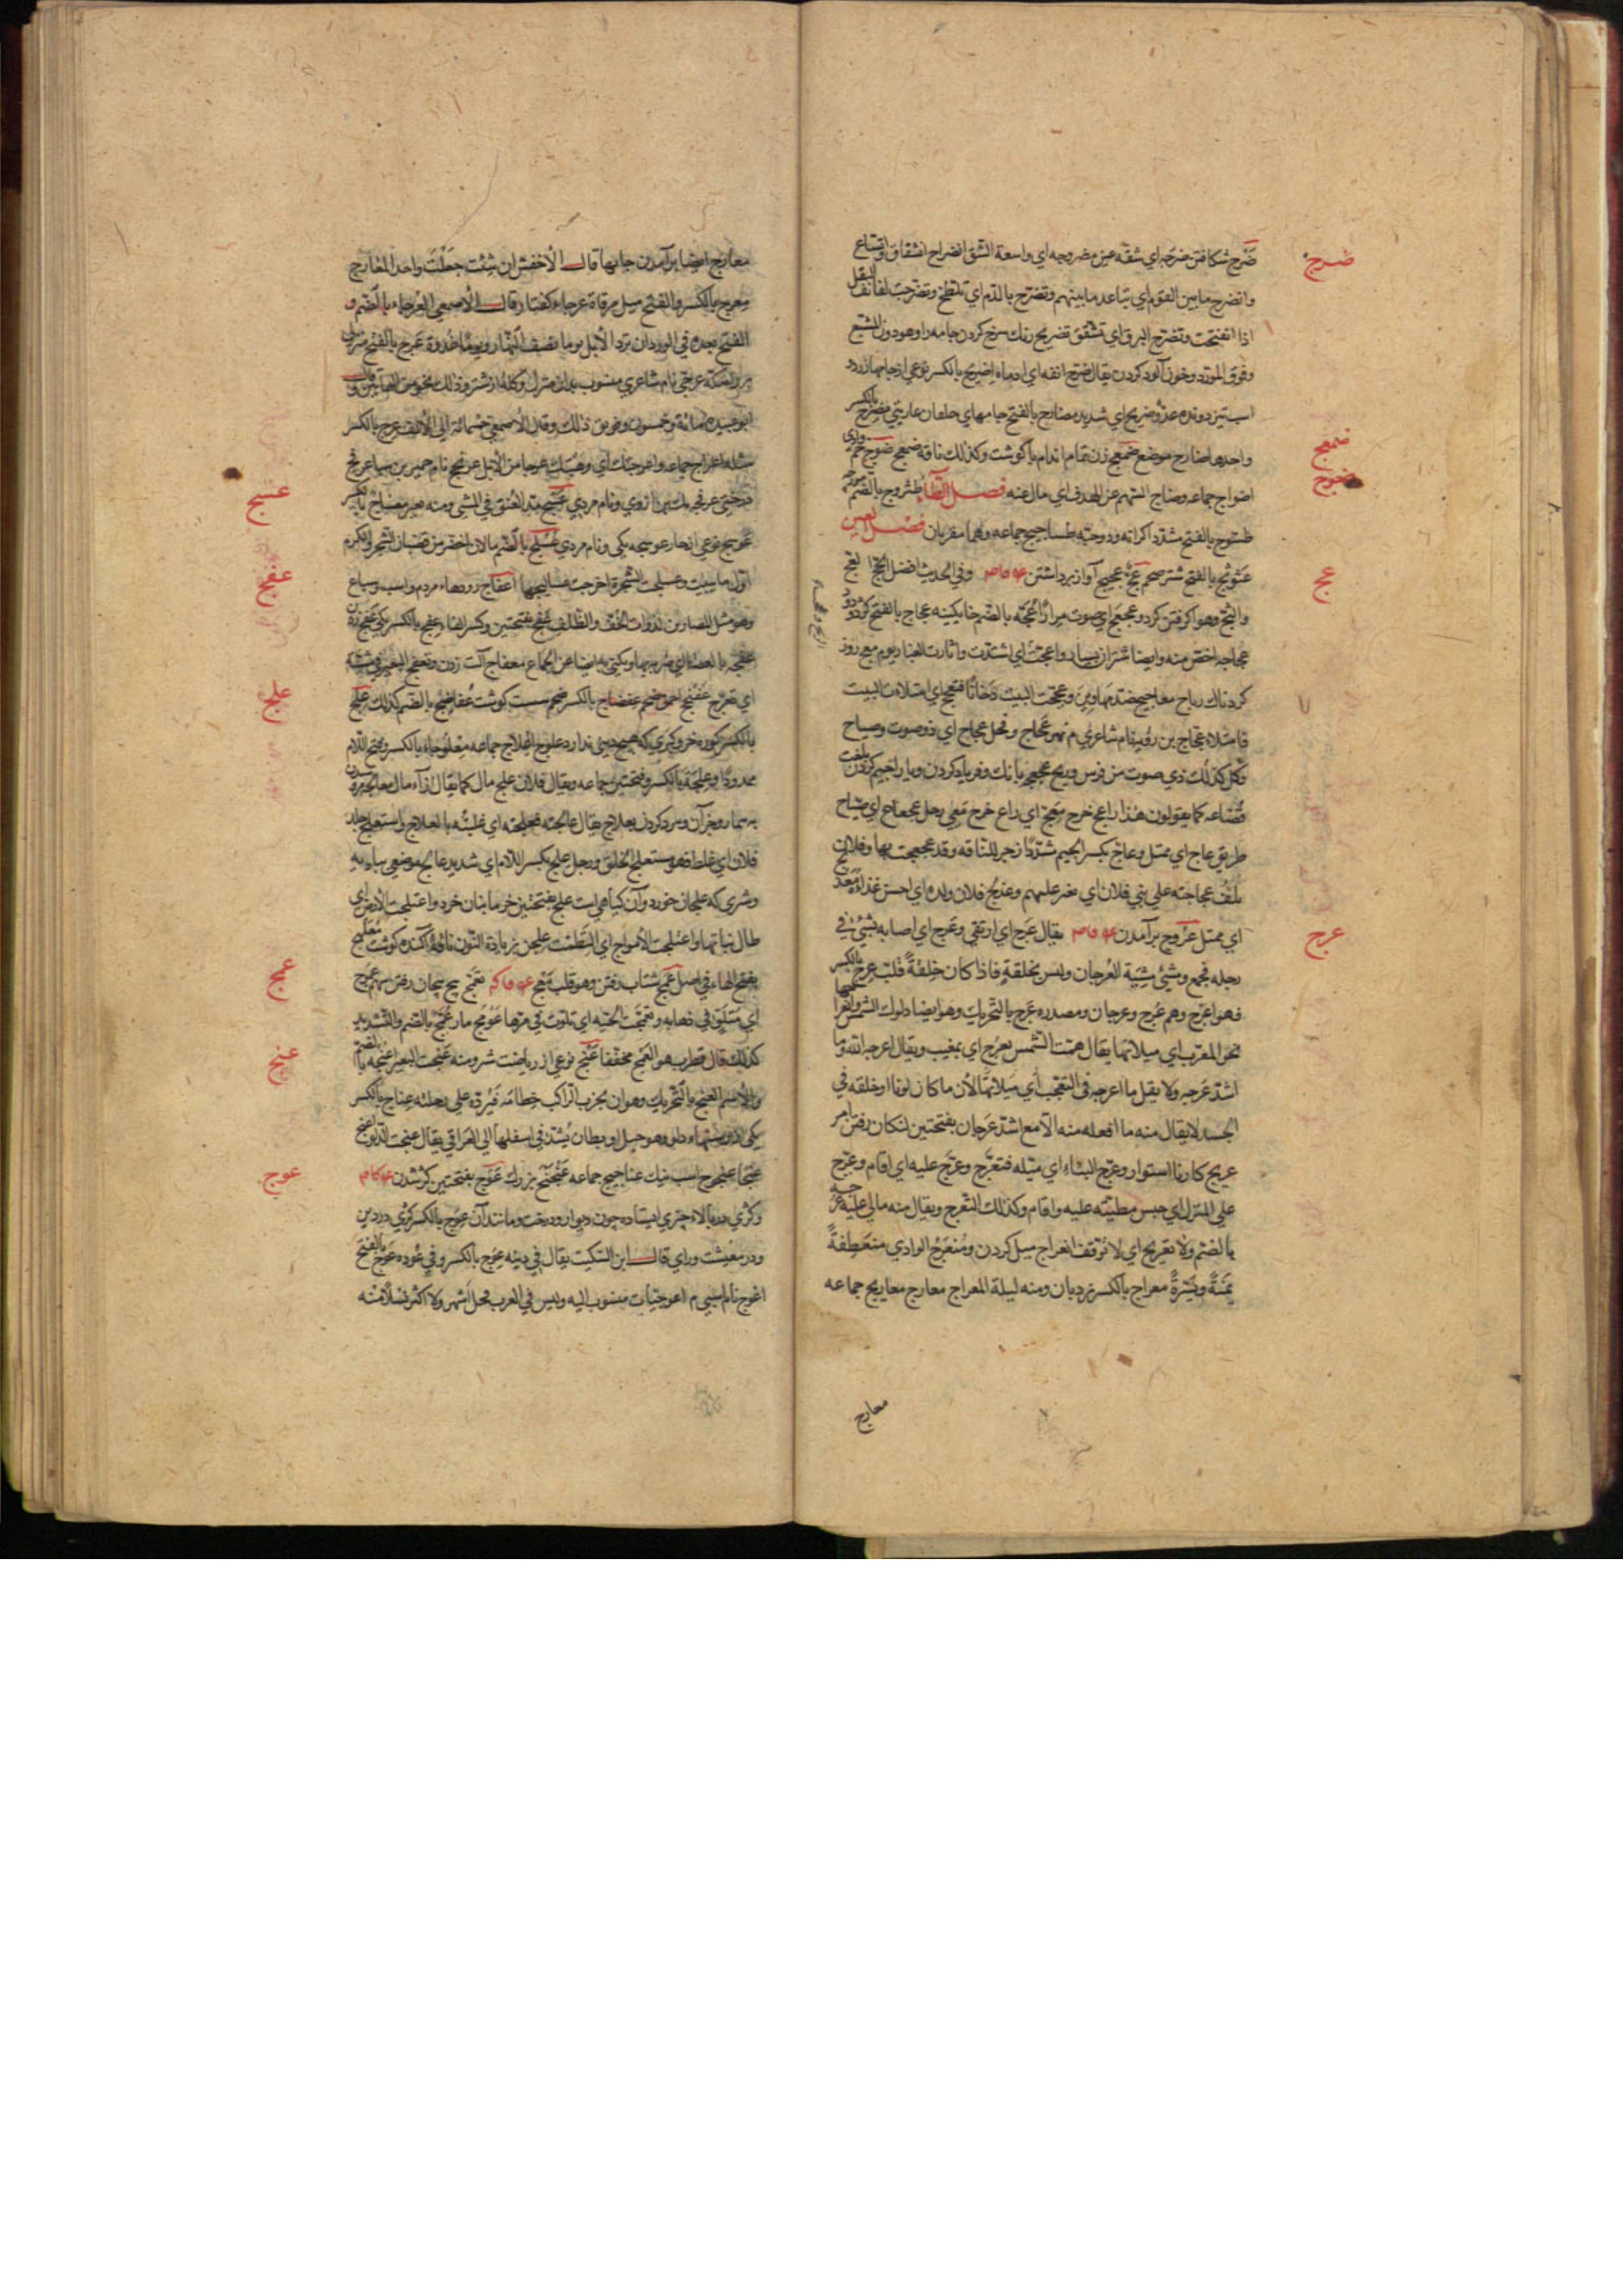 ضرج
ضَرْج شكافتن ضرجه اي شقّه عين مضروجه اي واسعة الشق انضراج انشقاق واتساع
وانضرج ما بين القوم اي تباعد ما بينهم وتضرّج بالدّم اي تلطخ وتضرّجت لفائف البقل
اذا انفتحت وتضرّج البرق اي تشقّق تضريج رنك سرخ كردن جامه را وهو دون المشبع
وفوق المورّد وخون آلود كردن يقال ضرّج انفه اي ادماه اضريج بالكسر نوعي از جامهاء زرد
اسب تيز دونده عدوٌ ضريج اي شديد مضارج بالفتح جامهاي خلقان عاريتي مضرج بالكسر
ضمعج
واحدها ضارج موضع ضمعج زن تمام اندام با كوشت وكذلك ناقة ضمعج ضوج خم وادي
ضوج
اضواج جماعه وضاج السّهم عن الهدف اي مال عنه فصل الطّاء طثروج بالضّم مورچه
طسّوج بالفتح مشدّد اكرانه ودو حبّه طساجيج جماعه وهما معرّبان فصل العين
عج
عثوثج بالفتح شتر ضخم عجّ عجيج آواز برداشتن وفي الحديث افضل الحجّ العجّ
والثّج وهوا كرفتن كرد وعجعج اي صوت مرارًا عُجّه بالضّم خايكينه عجاج بالفتح كرد ودود
عجاجه اخص منه وايضا شتران بسيار واعجّت اي اشتدّت واثارت الغبار يوم معج روز
كردناك رياح معاجيج ضدّ مهاوين وعجّجت البيت دخانًا فتعجّج اي امتلات البيت
فامتلا عجّاج بن رؤبه نام شاعري م نهر عجّاج وفحل عجّاج اي ذو صوت وصياح
وكل كذلك ذي صوت من قوس وريح عجعجه بانك وفرياد كردن ويا را جيم كردن بلغت
قضاعه كما يقولون هذا راعجّ خرج معِجّ اي راع خرج معي رجل عجعاج اي صيّاح
طريق عاج اي ممتلٍ وعاج بكسر الجيم مشدّدًا زجر للناقه وقد عجعجت بها وفلان
يلفّ عجاجته علي بني فلان اي يغير عليهم
عرج
اي ممتل عُرُوج برآمدن يقال عرج اي ارتقي وعرج اي اصابه شيٌ في
رجله فجمع ومشي مشية العُرجان وليس بخلقةٍ فاذا كان خِلقةً قلت عرِج بالكسر
فهو اعرج وهم عُرج وعرجان ومصدره عَرَج بالتّحريك وهو ايضا دلوك الشّمس
نحو المغرب اي ميلانها يقال همّت الشّمس بعرج اي بمغيب ويقال اعرجه الله وما
اشدّ عرجه ولا يقل ما اعرجه في التعجّب اي ميلانها لان ما كان لونا او خلقه في
الجسد لا يقال منه ما افعله منه الا مع اشدّ عرجان بفتحتين لنكان رفتن امر
عريج كار نا استوار وعرّج البناء اي ميّله فتعرّج وعرّج عليه اي اقام وعرّج
علي المنزل اي حبس مطيّته عليه واقام وكذلك التّعرّج ويقال منه مالي عليه عرجه
بالضّم ولا تعريج اي لا توقّف انعراج ميل كردن ومنعرَج الوادي منعطفةً
يَمنةً ويَسرةً معراج بالكسر نردبان ومنه ليلة المعراج معارج معاريج جماعه
معارج
معارج ايضا برآمدن جايها قال الاخفش ان شئت جعلت واحد المعارج
معرج بالكسر والفتح ميل مرقاة عرجاء كفتار قال الاصمعي العُرجاء بالضّم و
الفتح بعده في الورد ان ترد الابل يوما نصف النّهار ويومًا غدوة عرج بالفتح منزلي
براه مكّه عرجي نام شاعري منسوب بدان منزل وكلّه از شتر وذلك نحو من الثمانين وقال
ابو عبيده مائة وخمسون وفويق ذلك وقال الاصمعي خمسمائة الي الالف عرج بالكسر
مثله اعراج جماعه واعرجتك اي وهبتك عرجا من الابل عرنج نام حمير بن سبا عرفج
عسج
درختي عرفجه يكي ازوي ونام مردي عسج مدّ العنق في المشي ومنه بعير معساج بالكسر
عوسج نوعي از خار عوسجه يكي ونام مردي عسلج بالضّم مالان واخضر من قضبان الشّجر والكرم
عفج
اوّل ما نبت وعسلجت الشّجرة اخرجت عساليجها اعفاج رودهاء مردم واسب وسباع
وهو مثل المصارين لذوات الخفّ والظلف عفج بفتحتين وكسر الفاء وعفج بالكسر يكي
عفجه بالعصا اي ضربه بها ويكني به ايضا عن الجماع معفاج آلت زدن وتعفّج البعير في مشيه
علج
اي تعوّج عفنجج احمق ضخم عفضاج بالكسر ضخم سست كوشت عفاضج بالضّم كذلك علج
بالكسر كوره خر وكبري كه هيچ ديني ندارد علوج اعلاج جماعه معلوجاء بالكسر وفتح اللام
ممدودًا وعِلَجة بالكسر وفتحتين جماعه ويقال فلان علج مال كما يقال ازاء مال معالجه
بيمار وجز آن ومرد كردن بعلاج يقال عالجته فعلجته اي غلبته بالعلاج واستعلج جلد
فلان اي غلظ فهو مستعلج الخلق ورجل علج بكسر اللام اي شديد عالج موضعي بباديه
وشتري كه علجان خورد وآن كياهي است علج بفتحتين خرما بنان خرد واعتلجت الارض اي
طال نباتها واعتلجت الامواج اي التطمت علجن بزيادة النون ناقة آكنده كوشت
عمج
بفتح الهاء في اصل عمج شتاب رفتن وهو قلب معج تعمّج پيچ پيچان رفتن سهم عموج
اي يتلوّي في ذهابه وتعمّجت الحيّه اي تلوّت في مرّها عومج مار عمّج بالضّم والتّشديد
عنج
كذلك قال قطرب هو العمج مخفّفا عنج نوعي از رياضت شتر ومنه عنجت البعير اعنجه بالضّم
والاسم العنج بالتّحريك وهو ان يجذب الراكب خطامه فيردّه علي رجليه عناج بالكسر
عوج
عنجًا عنجوج اسب نيك عناجيج جماعه عنجنج بزرك عوج بفتحتين كژ شدن
وكژي در بالاء چيزي ايستاده چون ديوار ودرخت ومانند آن عوج بالكسر كژي در دين
ودر معيشت وراي قال ابن السّكيت يقال في دينه عوج بالكسر وفي عوده عوج بالفتح
اعوج نام اسبي م اعوجيّات منسوب اليه وليس في العرب فحل اشهر ولا اكثر نسلا منه